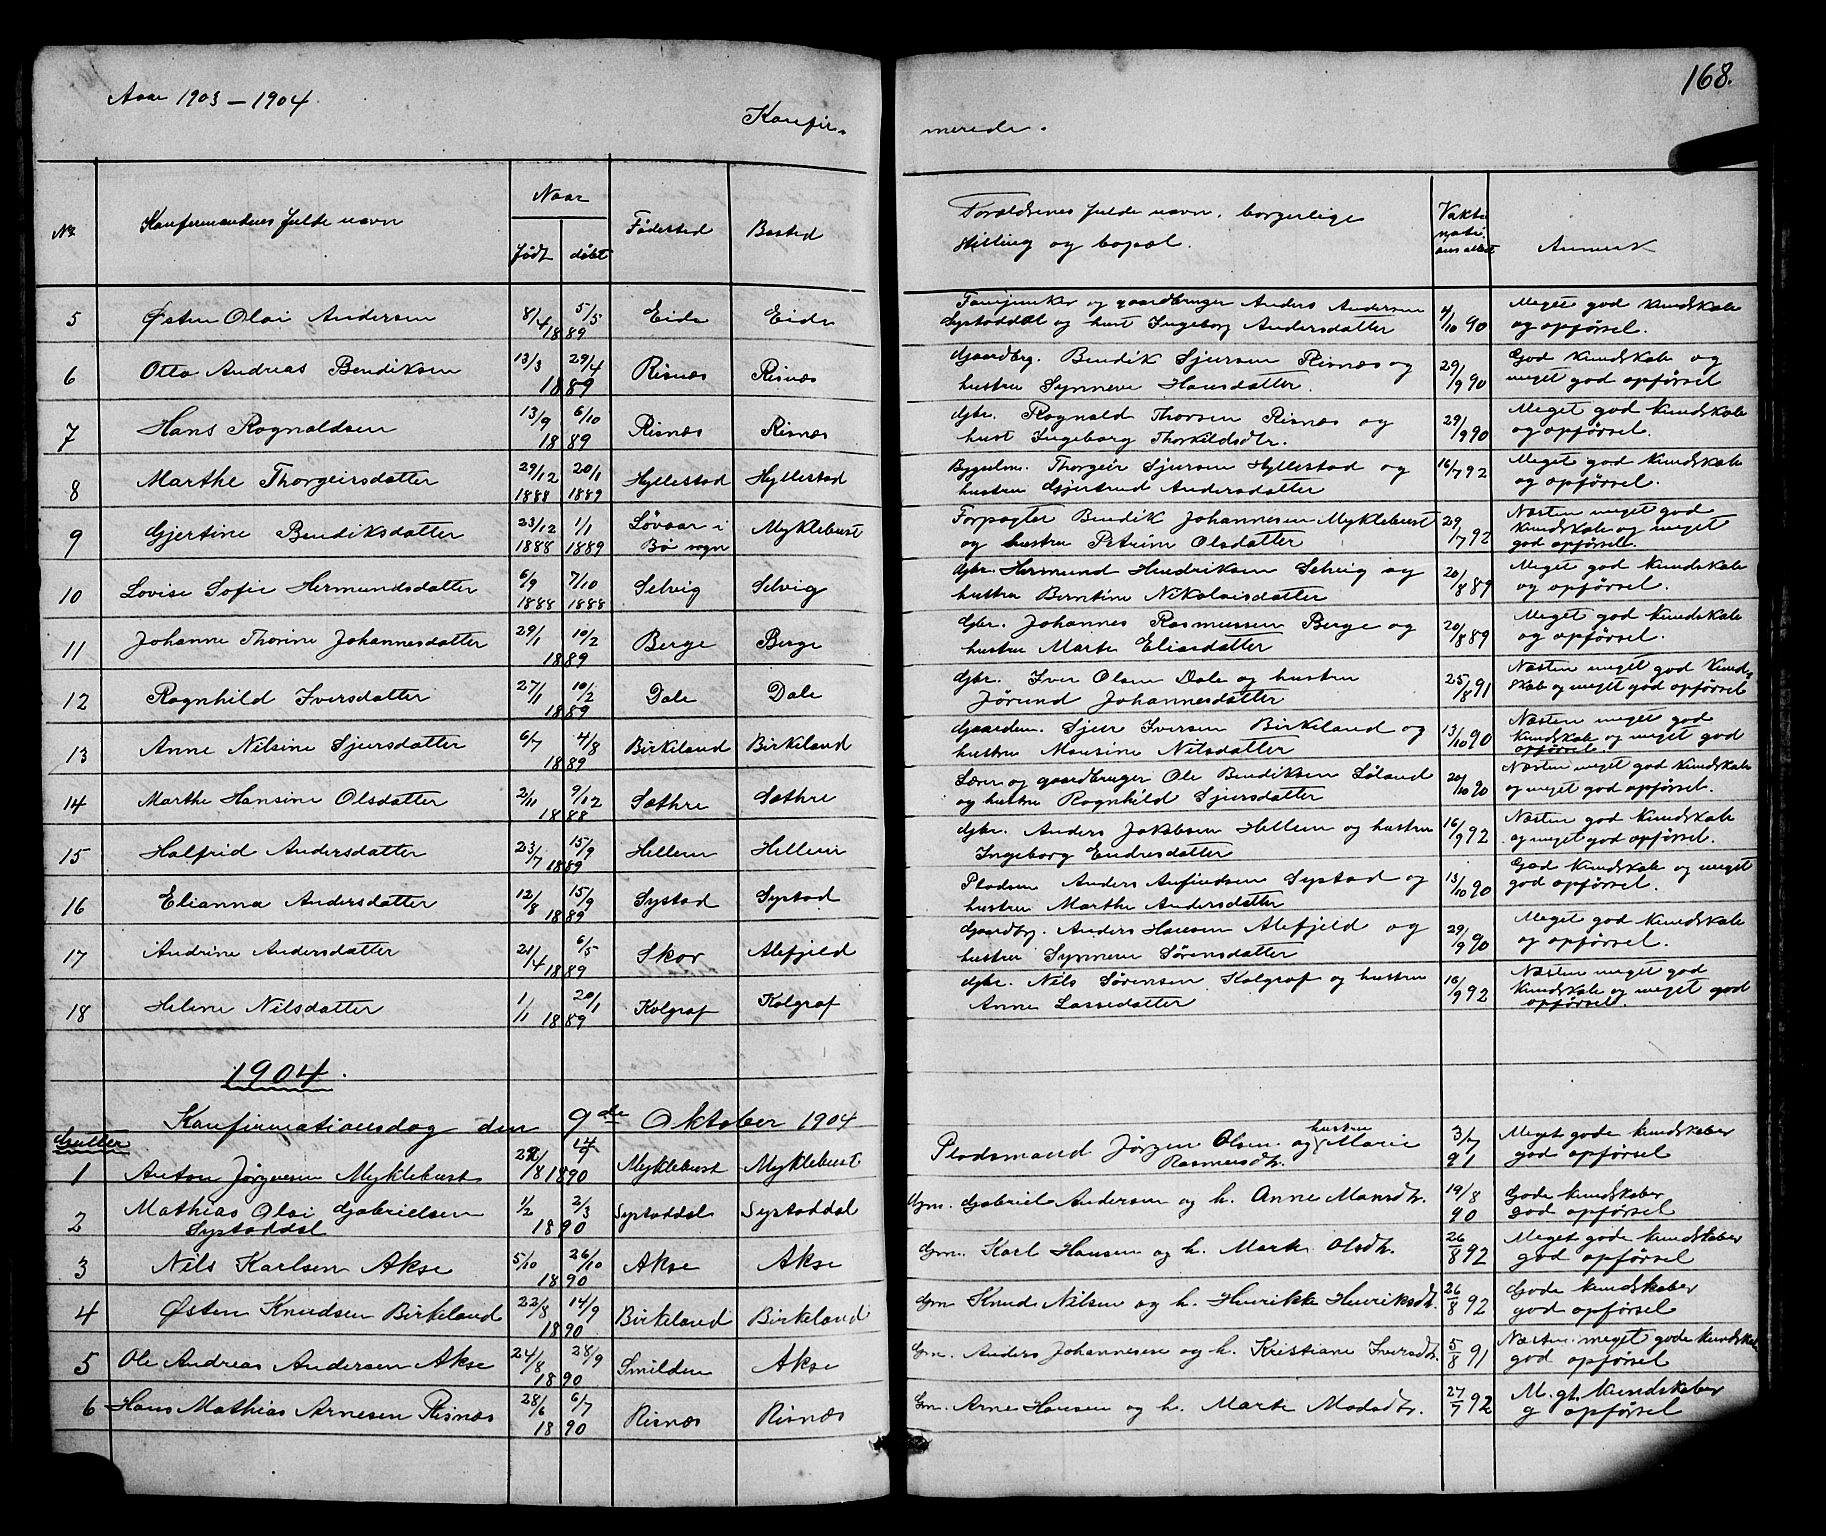 168.
Aar 1903 – 1904.
Konfir- merede.
No. Konfirmandens fulde navn Naar Fødested Bosted Forældrenes fulde navn, borgerlige Vakti
født døbt stilling og bopæl. nations attest Anmerk
5 Østen Olai Andersen 8/4 5/5 1889 Eide Eide og gaardbruger Anders Andersen 4/10 90 Meget god kundskab
Systaddal og hust Ingeborg Andersdatter og opførsel.
6 Otto Andreas Bendiksen 13/3 29/4 1889 Risnæs Risnæs Gaardbrg. Bendik Sjursen Risnæs og 29/9 90 God kundskab og
hustru Synneve Hansdatter. meget god opførsel
7 Hans Rognaldsen 13/9 6/10 1889 Risnæs Risnæs Gbr. Rognald Thorsen Risnæs og 29/9 90 Meget god kundskab
hust Ingeborg Thorkildsdtr. og opførsel.
8 Marthe Thorgeirsdatter 29/12 1888 20/1 1889 Hyllestad Hyllestad Bygselm. Thorgeir Sjursen Hyllestad og 16/7 92 Meget god kundskab
hustru Gjertrud Andersdatter og opførsel.
9 Gjertine Bendiksdatter 23/12 1888 1/1 1889 Løvaar i Bø sogn Myklebust Forpagter Bendik Johannesen Myklebust 29/7 92 Næsten meget god
og hustru Petrine Olsdatter kundskab og meget
god opførsel.
10 Lovise Sofie Hermundsdatter 6/9 1888 7/10 1888 Selvig Selvig Gbr. Hermund Hendriksen Selvig og 20/8 89 Meget god kundskab
hustru Berntine Nikolaisdatter og opførsel.
11 Johanne Thorine Johannesdatter 29/1 10/2 1889 Berge Berge Gbr. Johannes Rasmussen Berge og 20/8 89 Meget god kundskab
hustru Marte Eliasdatter og opførsel.
12 Ragnhild Iversdatter 27/1 10/2 1889 Dale Dale Gbr. Iver Olsen Dale og hustru 25/8 91 Næsten meget god kund-
Jørund Johannesdatter skab og meget god opførsel
13 Anne Nilsine Sjursdatter 6/7 4/8 1889 Birkeland Birkeland Gaardm. Sjur Iversen Birkeland og 13/10 90 Næsten meget god
hustru Mansine Nilsdatter kundskab og meget god
opførsel.
14 Marthe Hansine Olsdatter 2/11 9/12 1888 Sæthre Sæthre Lærer og gaardbruger Ole Bendiksen Løland 20/10 90 Næsten meget god kundskab
og hustru Rognhild Sjursdatter og meget god opførsel.
15 Halfrid Andersdatter 23/7 15/9 1889 Hellem Hellem Gbr. Anders Jakobsen Hellem og hustru 16/9 92 Næsten god kundskab
Ingeborg Endresdatter og meget god opførsel.
16 Elianna Andersdatter 12/8 15/9 1889 Systad Systad Pladsm Anders Anfindsen Systad og 13/10 90 God kundskab og meget
hustru Marthe Andersdatter god opførsel.
17 Andrine Andersdatter 21/4 6/5 1889 Skor Alefjeld Gaardbrg. Anders Hansen Alefjeld og 29/9 90 Meget god kundskab
hustru Synneve Sørensdatter og opførsel.
18 Helene Nilsdatter 1/1 20/1 1889 Kolgraf Kolgraf Gbr. Nils Sørensen Kolgraf og hustru 16/9 92 Næsten meget god
Anne Lassedatter kundskab og meget god
opførsel.
1904.
Konfirmationsdag den 9de Oktober 1904
Gutter
1 Anton Jørgensen Myklebust 1890 Myklebust Myklebust Pladsmand Jørgen Olsen og hustru Marie 3/7 91 Meget gode kundskaber
Rasmusdtr. god opførsel
2 Mathias Olai Gabrielsen 1/2 2/3 1890 Systaddal Systaddal Gm. Gabriel Andersen og h. Anne Mansdtr. 19/8 90 Gode kundskaber
Systaddal god opførsel
3 Nils Karlsen Akse 5/10 26/10 1890 Akse Akse Gm. Karl Hansen og h. Marte Olsdtr. 26/8 92 Meget gode kundskaber
god opførsel
4 Østen Knudsen Birkeland 22/8 14/9 1890 Birkeland Birkeland Gm Knud Nilsen og h. Henrikke Henriksdtr. 26/8 92 Gode kundskaber
god opførsel
5 Ole Andreas Andersen Akse 24/8 28/9 1890 Smilden Akse Gm. Anders Johannesen og h. Kristiane Iversdtr. 5/8 91 Næsten meget gode kundskab
god opførsel
6 Hans Mathias Arnesen Risnæs 28/6 6/7 1890 Risnæs Risnæs Gm. Arne Hansen og h. Marte Madsdtr. 27/7 92 M. gt. kundskaber
g opførsel